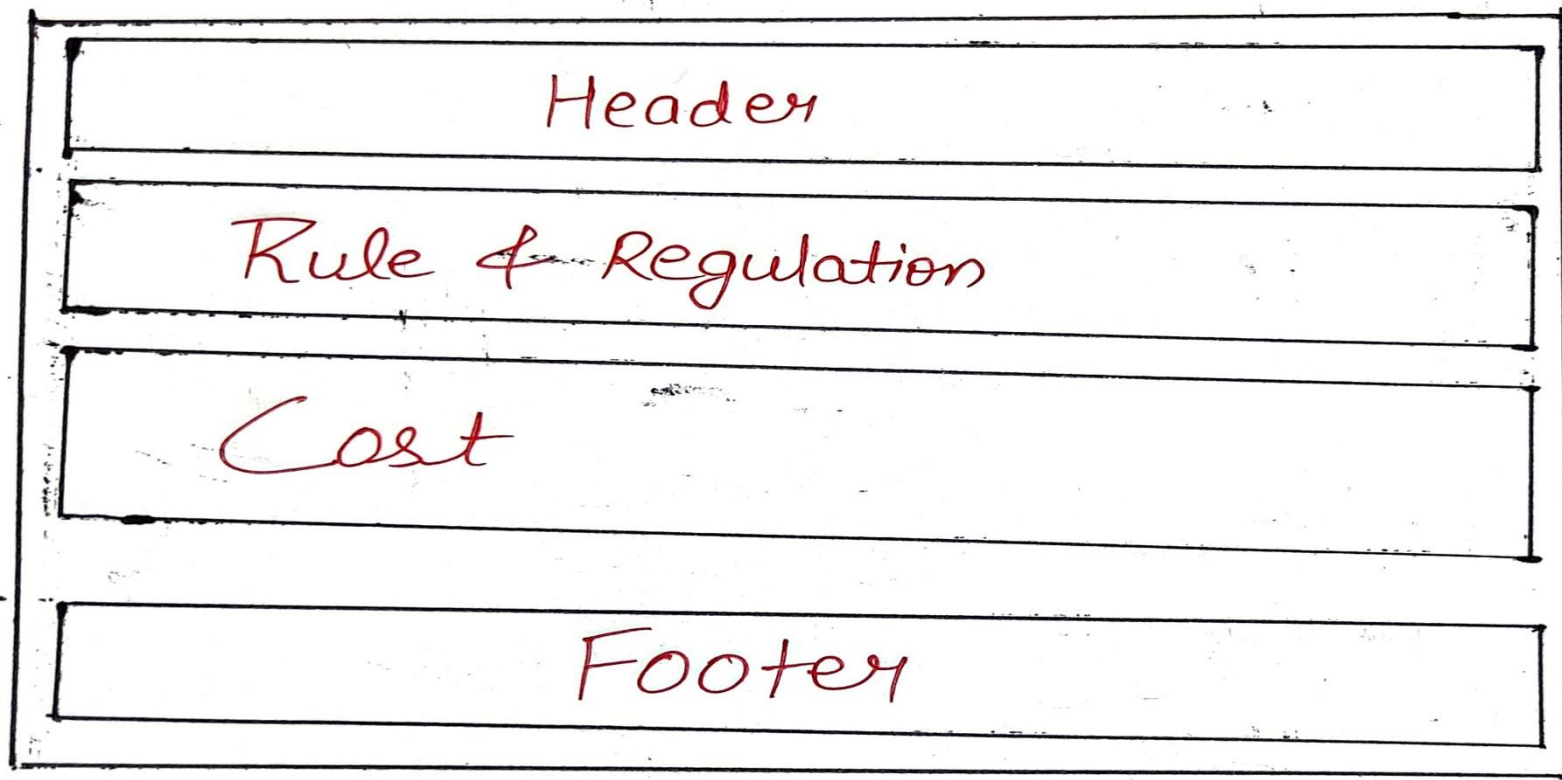 Header
Rule & Regulation
Cost
Footer